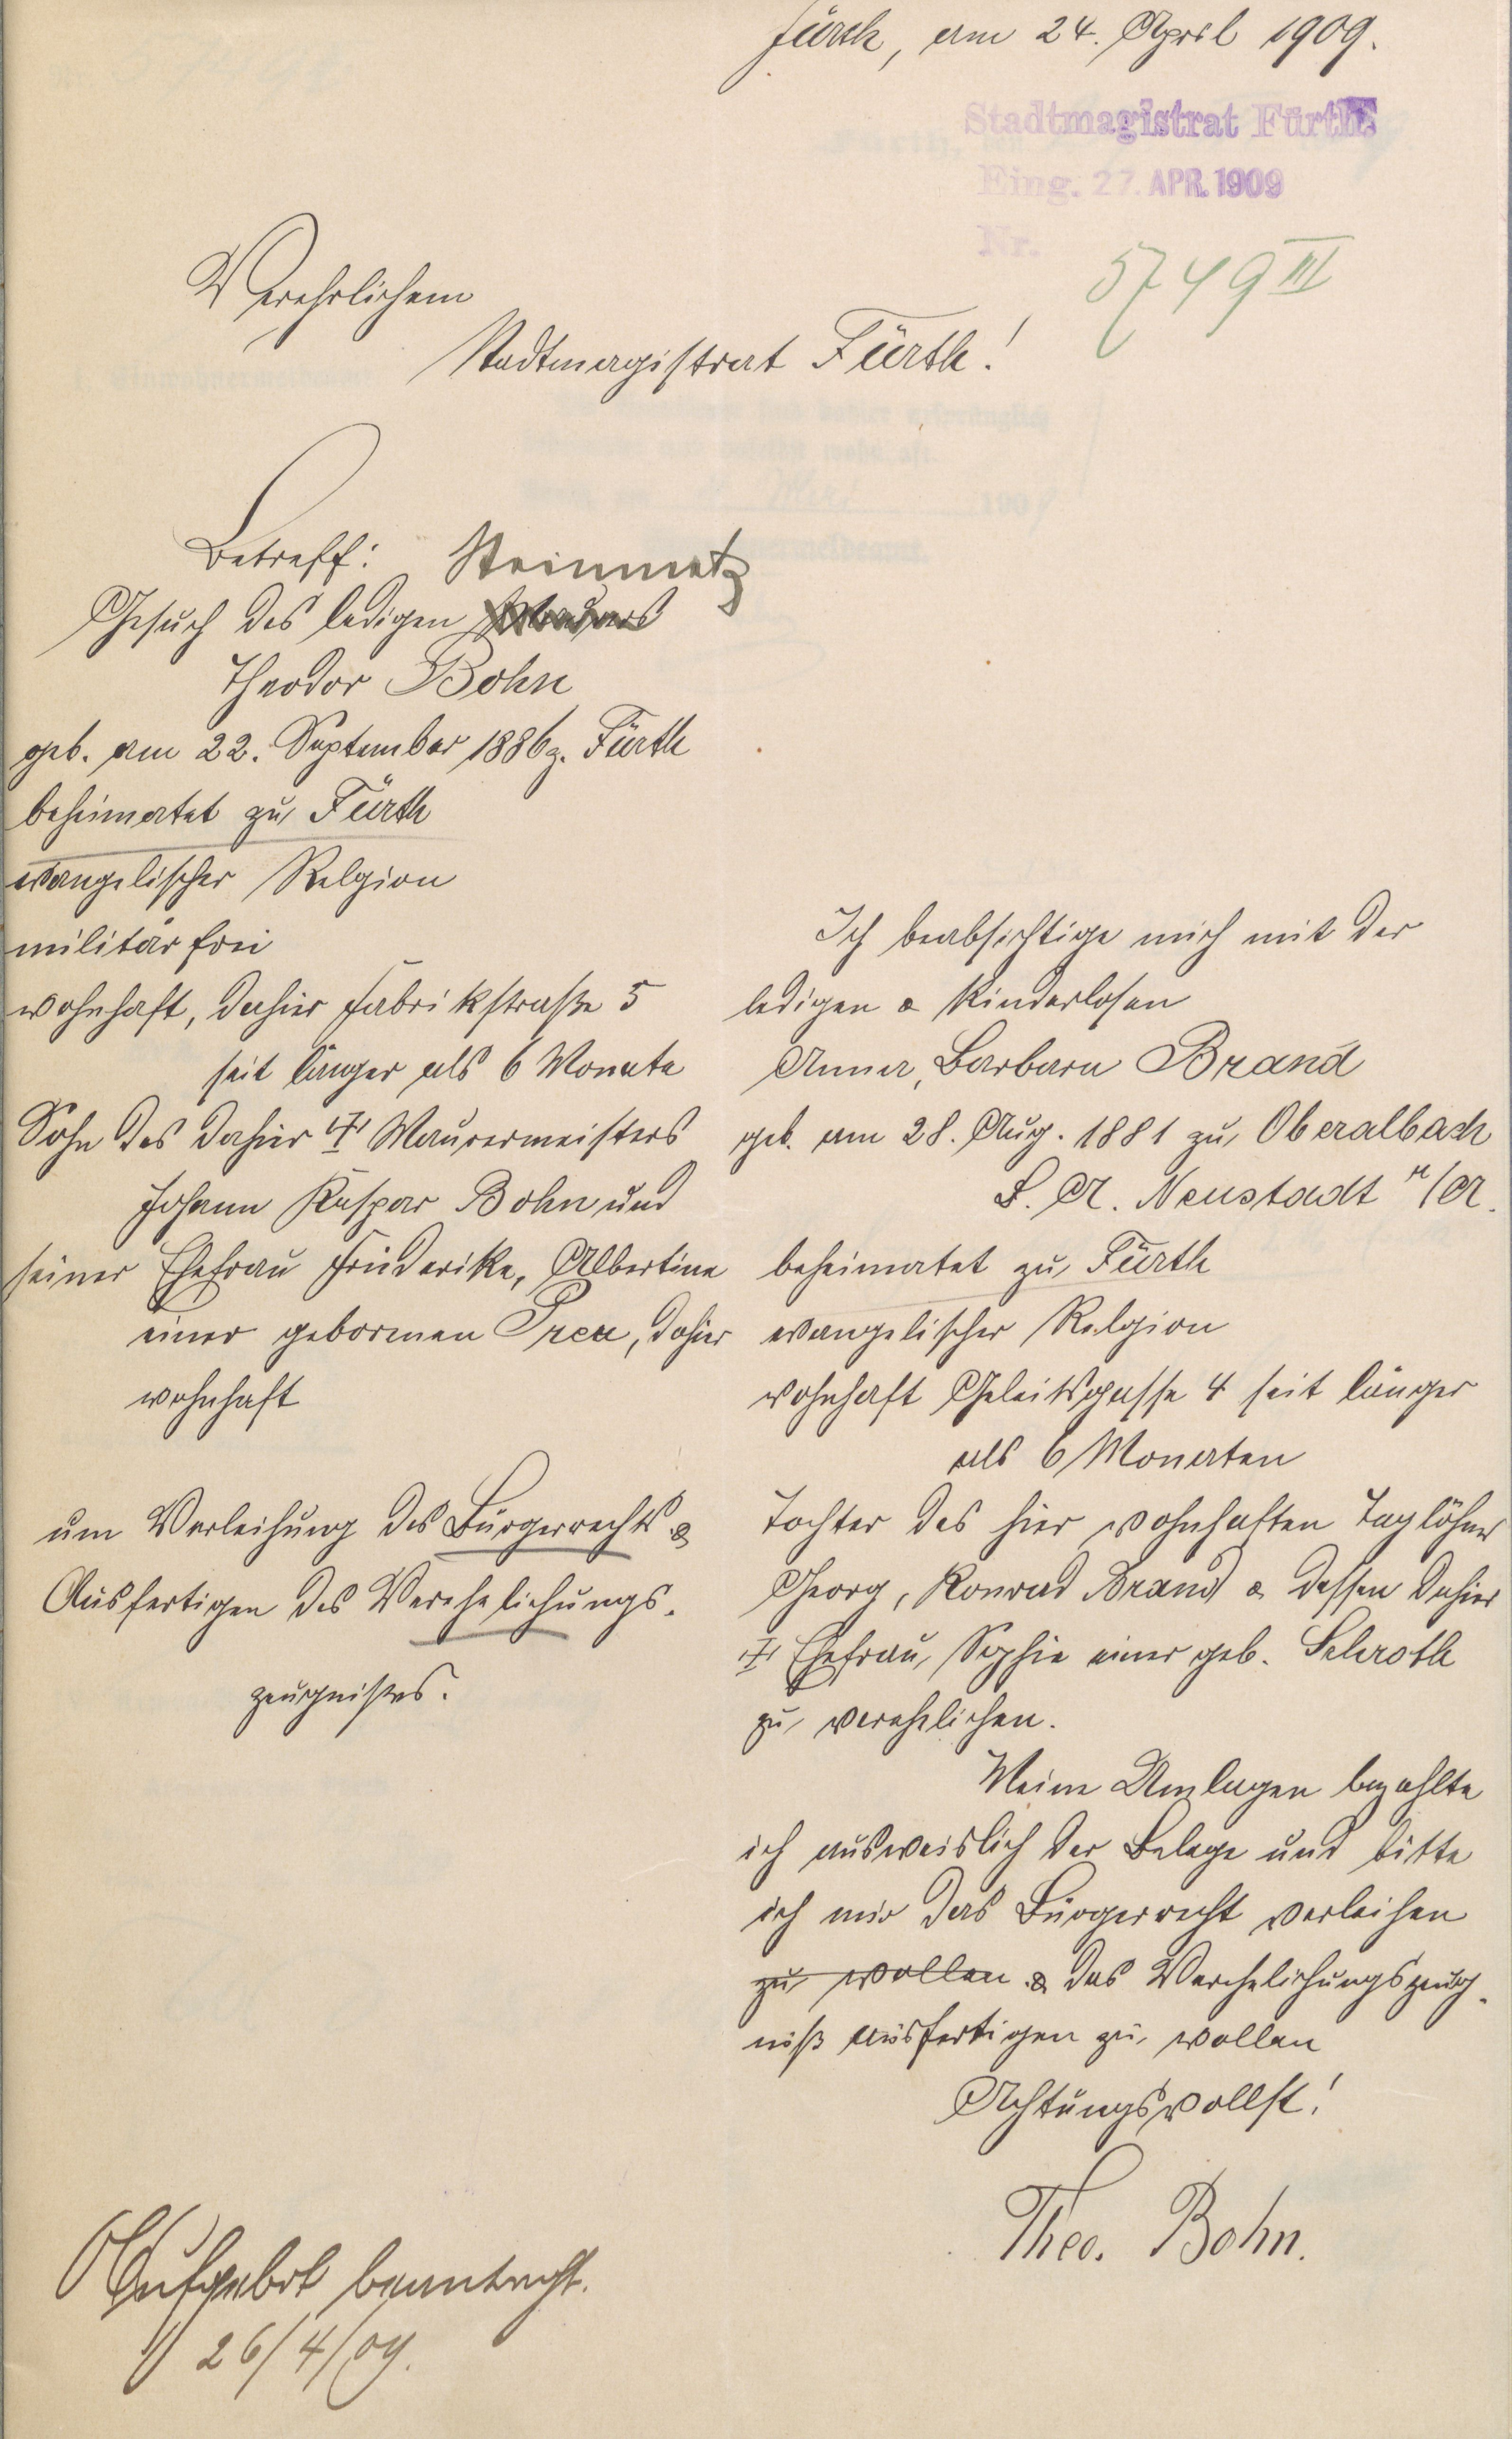 Fürth, am 24. April 1909.
Stadtmagistrat Fürth
Eing. 27. APR. 1909
Nr.
5749 III
Verehrlichem
Stadtmagistrat Fürth!
Betreff: Steinmetz
Gesuch des ledigen
Theodor Bohn
geb. am 22. September 1886 z. Fürth
beheimatet zu Fürth
evangelischer Relgion
militär frei
wohnhaft, dahier Fabrikstraße 5
seit länger als 6 Monate
Sohn des dahier ✝ Maurermeisters
Johann Kaspar Bohn und
seiner Ehefrau Friederike, Albertine
einer gebornen, dahier
wohnhaft
um Verleihung des Bürgerrechts &
Ausfertigen des Verehelichungs-
zeugnißes.
Ich beabsichtige mich mit der
ledigen & kinderlosen
Anna, Barbara Brand
geb. am 28. Aug. 1881 zu Oberalbach
B. A. Neustadt a/A.
beheimatet zu Fürth
evangelischer Relgion
wohnhaft Geleitsgasse 4 seit länger
als 6 Monaten
Tochter des hier wohnhaften Taglöhners
Georg, Konrad Brand & dessen dahier
✝ Ehefrau, Sophie einer geb. Schroth
zu verehelichen.
Meine Umlagen bezahlte
ich ausweislich der Belege und bitte
ich mir das Bürgerrecht verleihen
zu wollen & das Verehelichungszeug-
niß ausfertigen zu wollen
Achtungsvollst!
Theo. Bohn.
Aufgebot beantragt.
26/4/09.